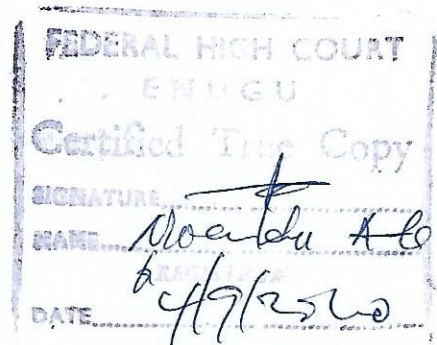 FEDERAL HIGH COURT
ENUGU
Certified True Copy
SIGNATURE
NAME
REGISTRAR
DATE 4/9/2020